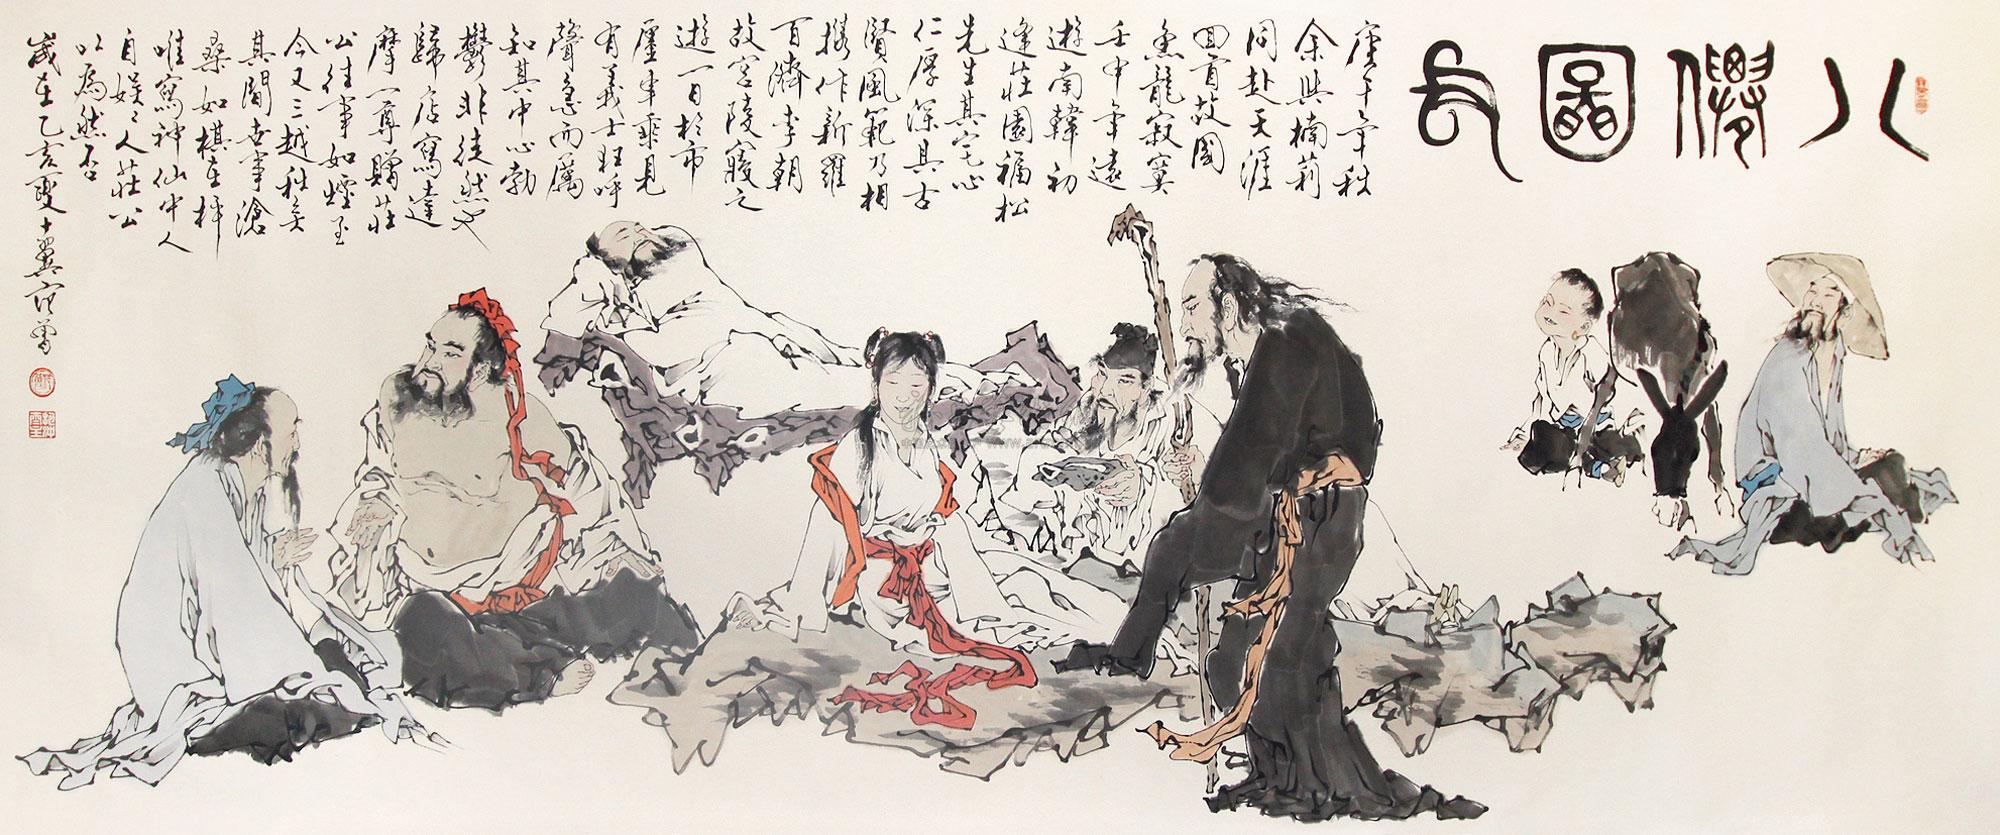 八僊圖
庚午年秋
余與楠莉
同赴天涯
回首故國
魚龍寂寞
壬申年遠
遊南韓初
逢莊園福松
先生其宅心
仁厚深具古
賢風範乃相
携作新羅
百濟李朝
故宮陵寢之
遊一日於市
廛車乘見
有義士狂呼
聲急而厲
知其中心勃
鬱非徒然也
歸店寫達
摩一尊贈莊
公往事如煙至
今又三越秋矣
其閒世事滄
桑如棋在枰
唯寫神仙中人
自娛々人莊公
以為然否
歲在乙亥夏十翼范曾